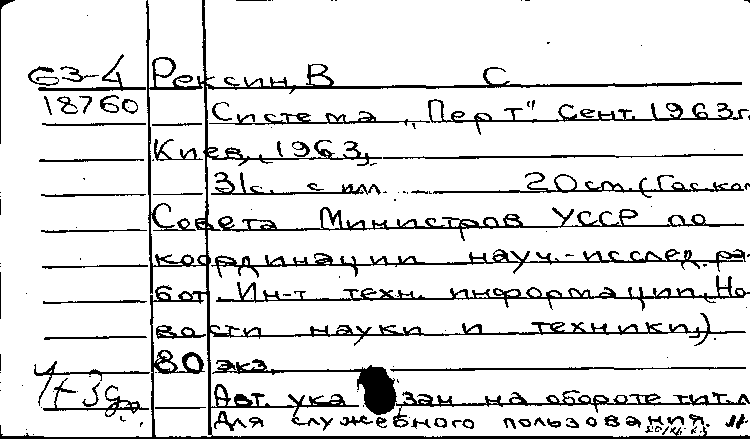 63-4 Рексин, В С
18760 Система „Перт". Сент. 1963г.
Киев, 1963,
31с. с илл. 20см. (Гос. ком
Совета Министров УССР по
координации науч.-исслед. ра-
бот. Ин-т техн. информации. Но-
вости науки и техники.)
80 экз.
Авт. указан на обороте тит. л
Для служебного пользования.